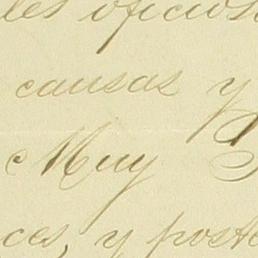 les oficios
causas y
Muy
ces, y poste